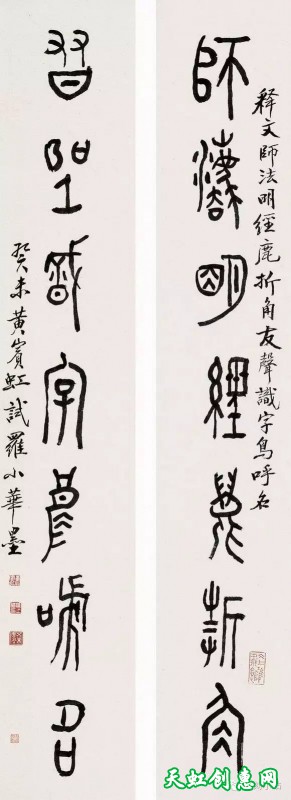 師灋明經鹿折角
釋文師法明經鹿折角友聲識字鳥呼名
友聲識字鳥呼名
癸未黃賓虹試羅小華墨
天虹创惠网